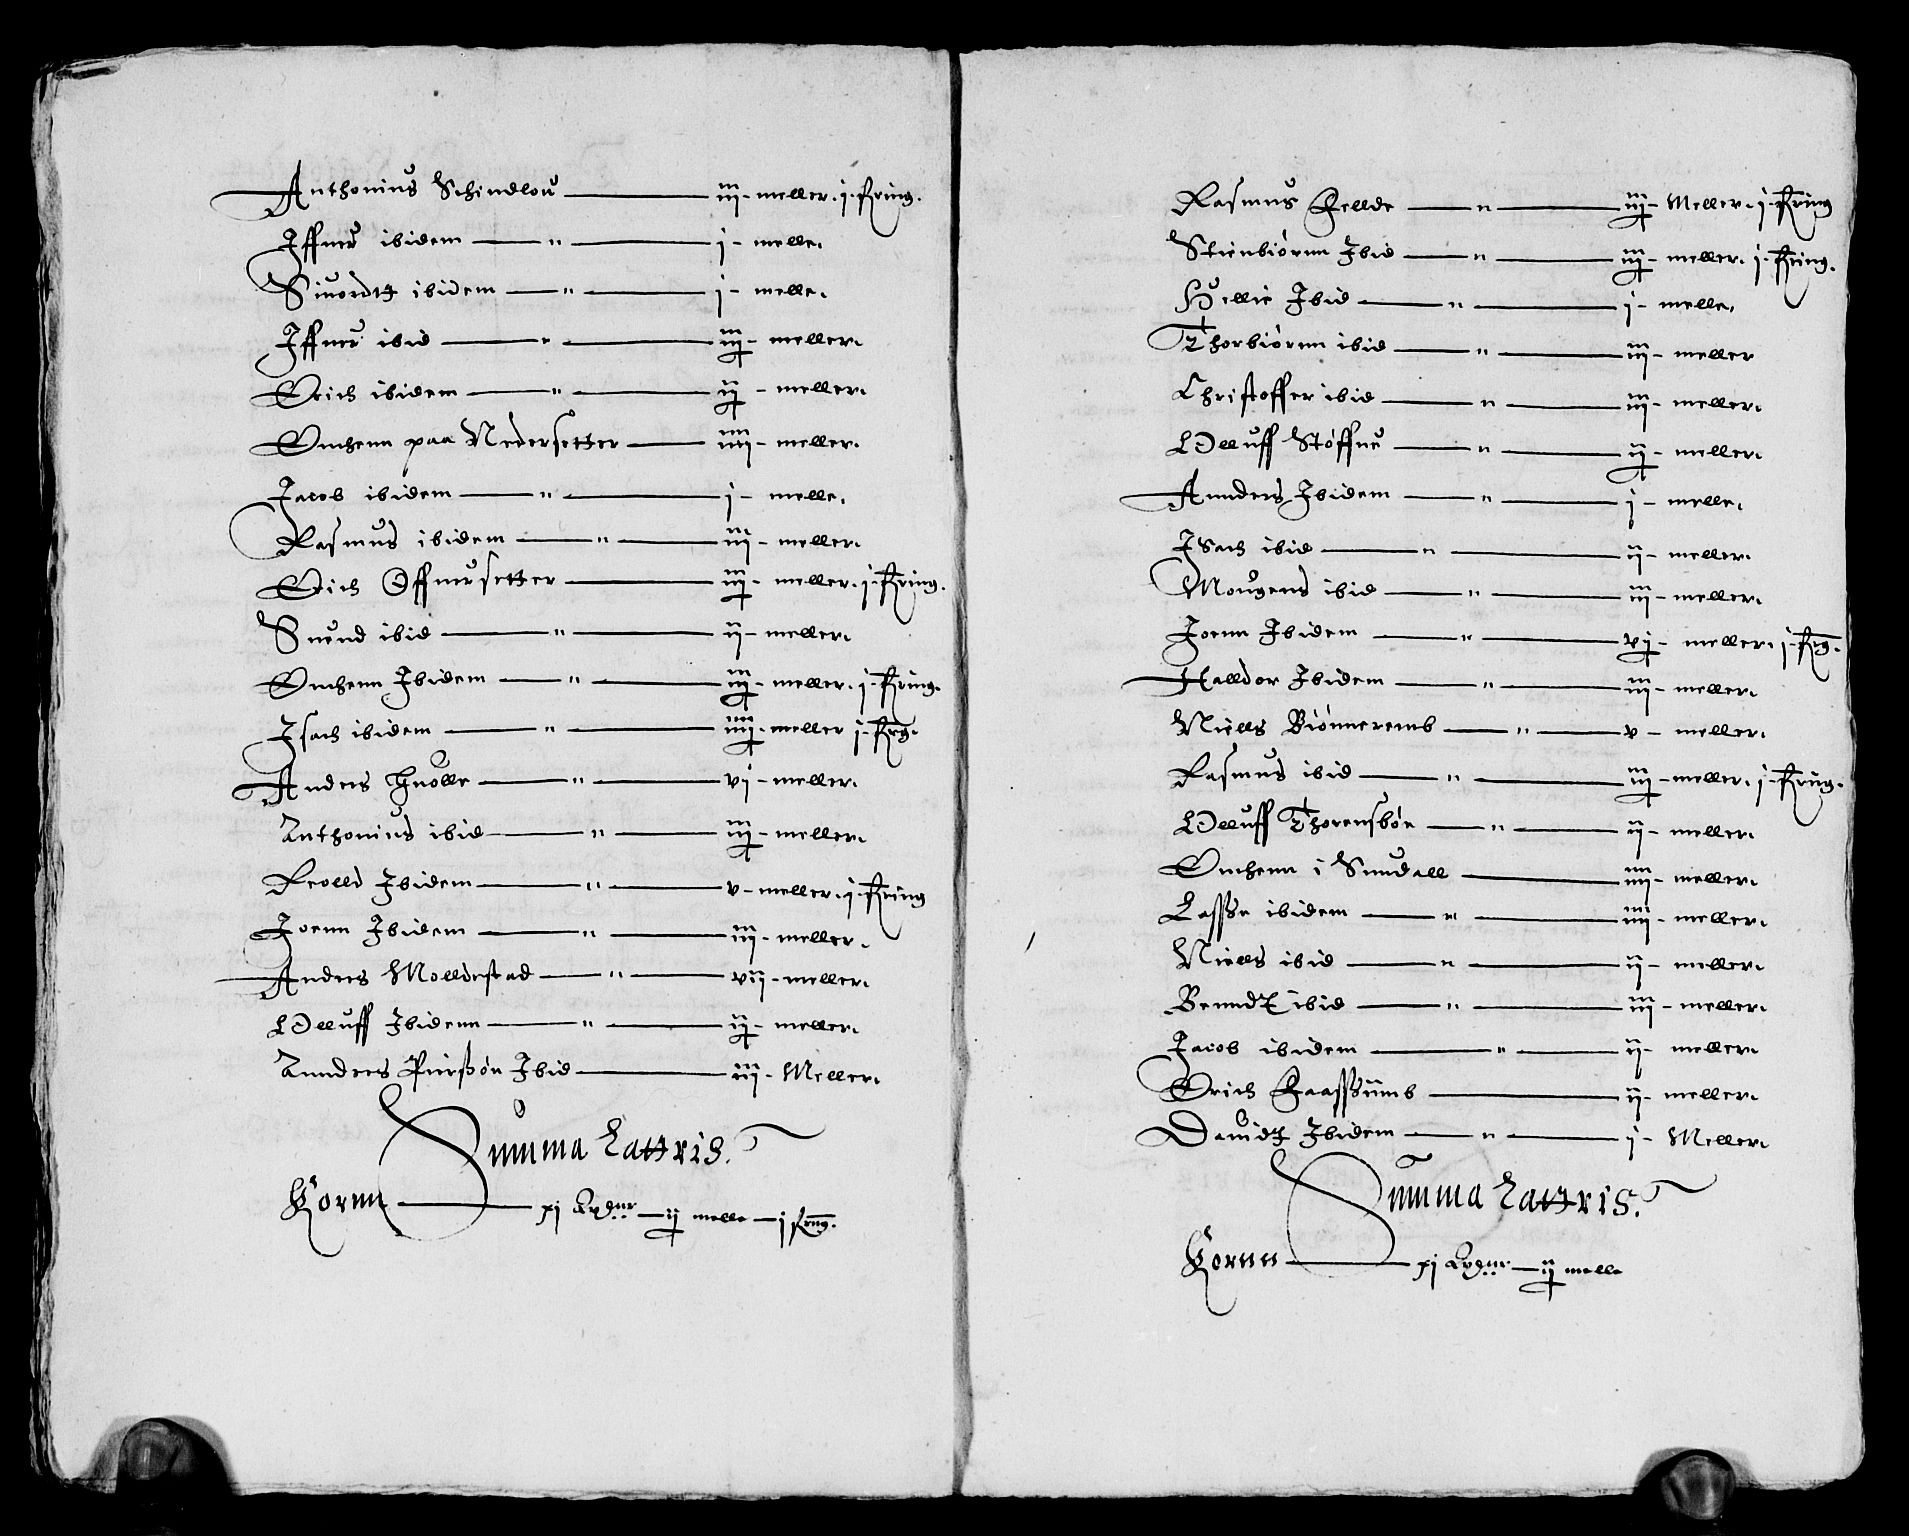 Anthonius Schindlou — iij - meller. j. kring.
Iffuer ibidem — " — j - melle.
Siuordtt ibidem — " — j - melle.
Iffuer ibid — " — iij - meller.
Erich ibidem — " — ij - meller.
Omhenn paa Nedersetter — iiij - meller.
Jacob ibidem — " — j - melle.
Rasmus ibidem — " — iij - meller.
Erich Øffuersetter — iij - meller. j. kring.
Suend ibid — " — ij - meller.
Omhenn Ibidem — " — iij - meller. j. kring.
Isach ibidem — " — iiij. meller j. krg.
Anders — " — vj - meller.
Anthonius ibid — " — iij - meller.
Reolld Ibidem — " — v - meller. j. kring
Joenn Ibidem — " — iij - meller.
Anders Molldestad — " — vij - meller.
Olluff Ibidenn — " — ij - meller.
Annders Pierßøn Ibid — iij - Meller.
Summa Lattris.
Kornn — xj — ij melle — j krng.
Rasmus Fellde — " — iij - Meller. j. kring
Stienbiørnn Ibid — " — iij - meller. j. kring.
Hellie Ibid — " — j - melle.
Thorbiørnn ibid — " — iij - meller
Christoffer ibid — " — iij - meller.
Olluff Støffue — " — ij - meller.
Annders Ibidem — " — j - melle.
Isach ibid — " — ij - meller.
Mougens ibid — " — iij - meller.
Joenn Ibidem — " — vj - meller. j. krg.
Halldor Ibidem — " — iij - meller.
Niells Biønneremb — " — v - meller.
Rasmus ibid — " — iij - meller. j. kring.
Olluff Thorensbøe — " — ij - meller.
Omhenn i Sunndall — iiij - meller.
Lasße ibidem — " — iiij - meller.
Niells ibid — " — ij - meller.
Benndt ibid — " — iij - meller.
Jacob ibidem — " — ij - meller.
Erich Faassßumb — ij - meller.
Dauidt Ibidem — " — j - Meller.
Summa Lattris.
Kornn — xj — ij melle